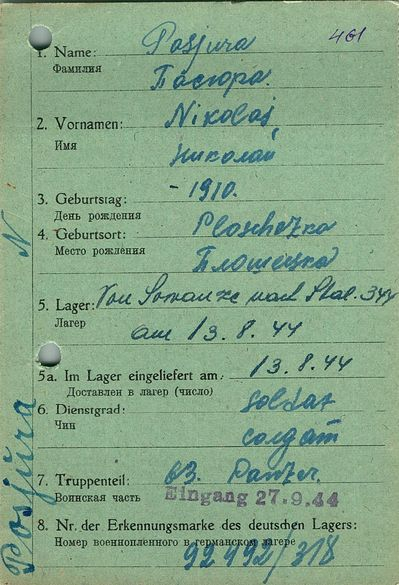 461
1. Name: Posjura
Фамилия Пасюра.
2. Vornamen: Nikolaj
Имя Николай
3. Geburtstag: - 1910.
День рождения
4. Geburtsort: Ploschezka
Место рождения Плошецка
5. Lager: Von nach Stal. 344
Лагер am 13.8.44
5a. Im Lager eingeliefert am: 13.8.44
Доставлен в лагер (число)
6. Dienstgrad: Soldat
Чин солдат
7. Truppenteil: 63. Panzer.
Воинская часть Eingang 27.9.44
8. Nr. der Erkennungsmarke des deutschen Lagers:
Номер военнопленного в германском лагере
92492/318
Posjura N